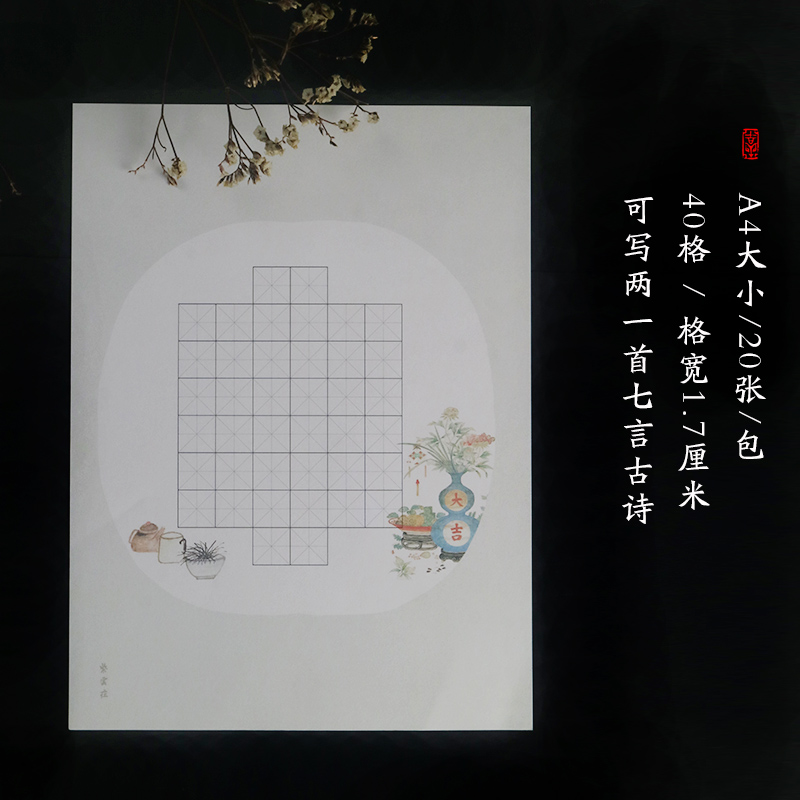 A4大小/20张/包
40格 / 格宽1.7厘米
可写两一首七言古诗
大
吉